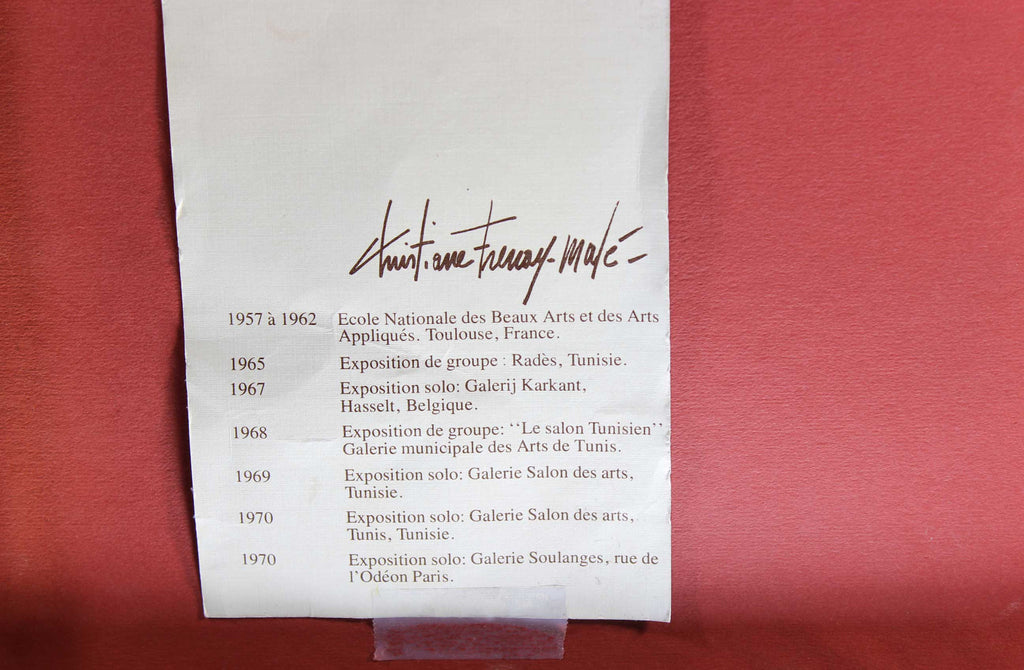 Christiane Frenay-Malé
1957 à 1962 Ecole Nationale des Beaux Arts et des Arts
Appliqués. Toulouse, France.
1965 Exposition de groupe : Radès, Tunisie.
1967 Exposition solo: Galerij Karkant,
Hasselt, Belgique.
1968 Exposition de groupe: ‘‘Le salon Tunisien’’
Galerie municipale des Arts de Tunis.
1969 Exposition solo: Galerie Salon des arts,
Tunisie.
1970 Exposition solo: Galerie Salon des arts,
Tunis, Tunisie.
1970 Exposition solo: Galerie Soulanges, rue de
l’Odéon Paris.